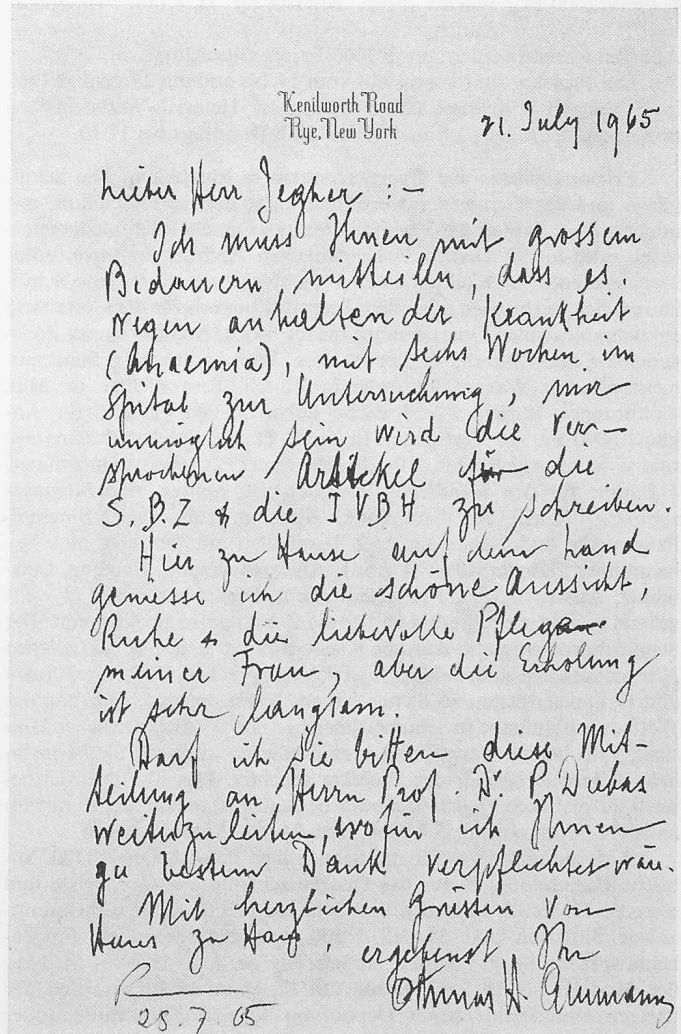 Kenilworth Road
Rye, New York
21. July 1965
Lieber Herr Jegher :—
Ich muss Ihnen mit grossem
Bedauern mitteilen, dass es,
wegen anhaltender Krankheit
(Anaemia), mit sechs Wochen im
Spital zur Untersuchung, mir
unmöglich sein wird die ver-
sprochenen Artikel für die
S.B.Z & die IVBH zu schreiben.
Hier zu Hause auf dem Land
geniesse ich die schöne Aussicht,
Ruhe & die liebevolle Pflege
meiner Frau, aber die Erholung
ist sehr langsam.
Darf ich Sie bitten diese Mit-
teilung an Herrn Prof. Dr. P. Dubas
weiterzuleiten, wofür ich Ihnen
zu bestem Dank verpflichtet wäre.
Mit herzlichen Grüssen von
Haus zu Haus, ergebenst Ihr
Othmar H. Ammann
28.7 65